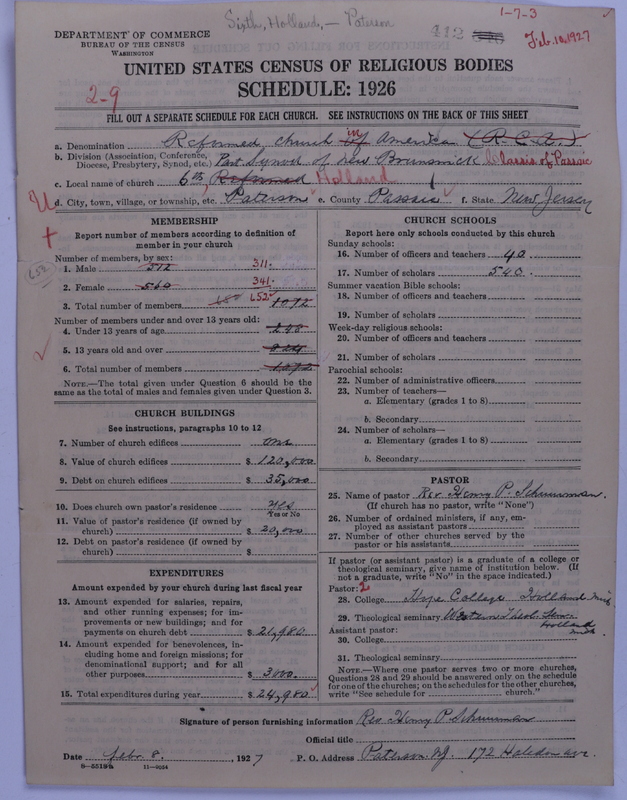 Sixth, Holland, — Paterson
1-7-3
412
Feb. 10, 1927
DEPARTMENT OF COMMERCE
BUREAU OF THE CENSUS
WASHINGTON
UNITED STATES CENSUS OF RELIGIOUS BODIES
SCHEDULE: 1926
2-9
FILL OUT A SEPARATE SCHEDULE FOR EACH CHURCH. SEE INSTRUCTIONS ON THE BACK OF THIS SHEET
a. Denomination Reformed Church in America (R.C.A.)
b. Division (Association, Conference, Diocese, Presbytery, Synod, etc.) Part. Synod of New Brunswick Classis of Passaic
c. Local name of church 6th, Reformed Holland
d. City, town, village, or township, etc. Paterson e. County Passaic f. State New Jersey
MEMBERSHIP
Report number of members according to definition of member in your church
Number of members, by sex:
1. Male 512 311
2. Female 560 341
652
3. Total number of members 652 1072
Number of members under and over 13 years old:
4. Under 13 years of age 248
5. 13 years old and over 824
6. Total number of members 1072
NOTE.—The total given under Question 6 should be the
same as the total of males and females given under Question 3.
CHURCH BUILDINGS
See instructions, paragraphs 10 to 12
7. Number of church edifices one
8. Value of church edifices $ 120,000
9. Debt on church edifices $ 35,000
10. Does church own pastor's residence yes
Yes or No
11. Value of pastor's residence (if owned by
church) $ 20,000
12. Debt on pastor's residence (if owned by
church) $
EXPENDITURES
Amount expended by your church during last fiscal year
13. Amount expended for salaries, repairs,
and other running expenses; for im-
provements or new buildings; and for
payments on church debt $ 21,980
14. Amount expended for benevolences, in-
cluding home and foreign missions; for
denominational support; and for all
other purposes $ 3000.
15. Total expenditures during year $ 24,980
CHURCH SCHOOLS
Report here only schools conducted by this church
Sunday schools:
16. Number of officers and teachers 40
17. Number of scholars 540
Summer vacation Bible schools:
18. Number of officers and teachers
19. Number of scholars
Week-day religious schools:
20. Number of officers and teachers
21. Number of scholars
Parochial schools:
22. Number of administrative officers
23. Number of teachers—
a. Elementary (grades 1 to 8)
b. Secondary
24. Number of scholars—
a. Elementary (grades 1 to 8)
b. Secondary
PASTOR
25. Name of pastor Rev. Henry P. Schuurman.
(If church has no pastor, write "None")
26. Number of ordained ministers, if any, em-
ployed as assistant pastors
27. Number of other churches served by the
pastor or his assistants
If pastor (or assistant pastor) is a graduate of a college or
theological seminary, give name of institution below. (If
not a graduate, write "No" in the space indicated.)
Pastor: 2
28. College Hope College Holland Mich
29. Theological seminary Western Theol. Sem.
Holland
Mich.
Assistant pastor:
30. College
31. Theological seminary
NOTE.—Where one pastor serves two or more churches,
Questions 28 and 29 should be answered only on the schedule
for one of the churches; on the schedules for the other churches,
write "See schedule for church."
Signature of person furnishing information Rev. Henry P. Schuurman
Official title
Date Febr. 8. , 1927 P. O. Address Paterson N.J. 172 Haledon ave.
8-5518a 11-9034